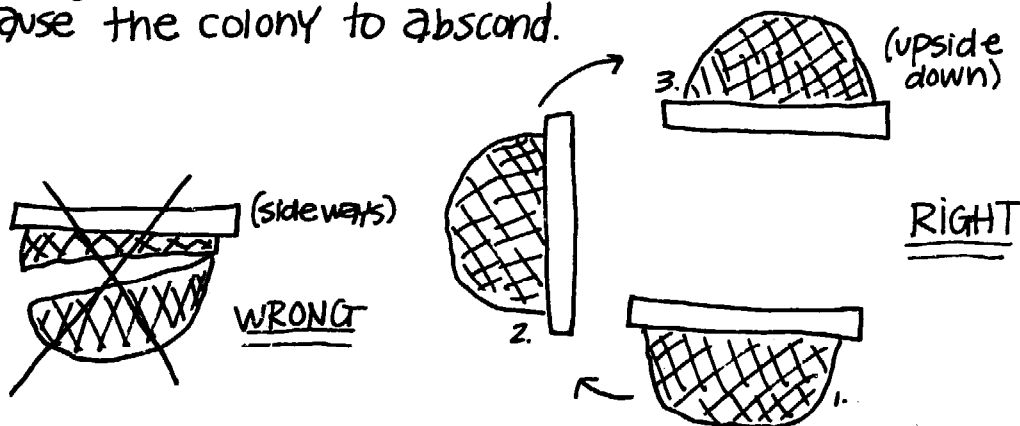 ause the colony to abscond.
(upside
down)
3.
(sideways)
RIGHT
WRONG
2.
1.